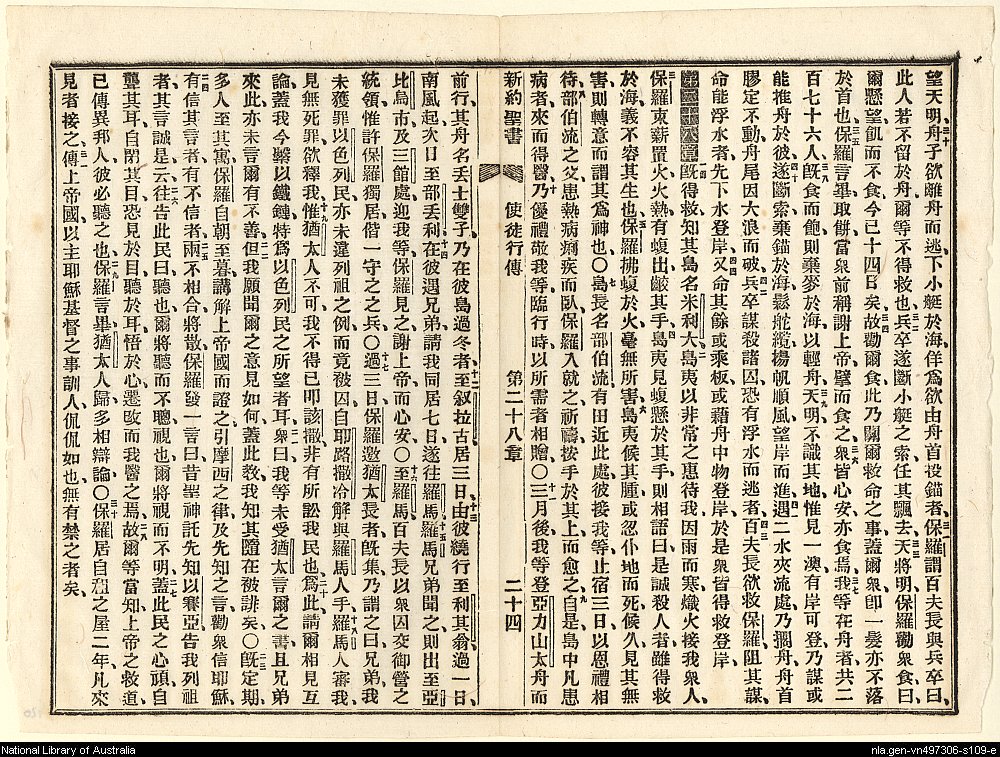 望天明舟子欲離舟而逃下小艇於海佯爲欲由舟首投錨者保羅謂百夫長與兵卒曰
此人若不留於舟爾等不得救也兵卒遂斷小艇之索任其飄去天將明保羅勸衆食曰
爾懸望飢而不食今已十四日矣故勸爾食此乃關爾救命之事蓋爾衆卽一髮亦不落
於首也保羅言畢取餅當衆前稱謝上帝擘而食之衆皆心安亦食焉我等在舟者共二
百七十六人旣食而飽則棄麥於海以輕舟天明不識其地惟見一澳有岸可登乃謀或
能推舟於彼遂斷索棄錨於海鬆舵纜揚帆順風望岸而進遇二水夾流處乃擱舟舟首
膠定不動舟尾因大浪而破兵卒謀殺諸囚恐有浮水而逃者百夫長欲救保羅阻其謀
命能浮水者先下水登岸又命其餘或乘板或藉舟中物登岸於是衆皆得救登岸
第二十八章旣得救知其島名米利大島夷以非常之惠待我因雨而寒熾火接我衆人
保羅束薪置火火熱有蝮出齩其手島夷見蝮懸於其手則相語曰是誠殺人者雖得救
於海義不容其生也保羅拂蝮於火毫無所害島夷候其腫或忽仆地而死候久見其無
害則轉意而謂其爲神也〇島長名部伯流有田近此處彼接我等止宿三日以恩禮相
待部伯流之父患熱病痢疾而臥保羅入就之祈禱按手於其上而愈之自是島中凡患
病者來而得醫乃優禮敬我等臨行時以所需者相贈〇三月後我等登亞力山太舟而
新約聖書 使徒行傳 第二十八章 二十四
前行其舟名丢士雙子乃在彼島過冬者至叙拉古居三日由彼繞行至利其翁過一日
南風起次日至部丢利在彼遇兄弟請我同居七日遂往羅馬羅馬兄弟聞之則出至亞
比烏市及三館處迎我等保羅見之謝上帝而心安〇至羅馬百夫長以衆囚交御營之
統領惟許保羅獨居偕一守之之兵〇過三日保羅邀猶太長者旣集乃謂之曰兄弟我
未獲罪以色列民亦未違列祖之例而竟被囚自耶路撒冷解與羅馬人手羅馬人審我
見無死罪欲釋我惟猶太人不可我不得已叩該撒非有所訟我民也爲此請爾相見互
論蓋我今繫以鐵鏈特爲以色列民之所望者耳衆曰我等未受猶太言爾之書且兄弟
來此亦未言爾有不善但我願聞爾之意見如何蓋此敎我知其隨在被誹矣〇旣定期
多人至其寓保羅自朝至暮講解上帝國而證之引摩西之律及先知之言勸衆信耶穌
有信其言者有不信者兩不相合將散保羅發一言曰昔聖神託先知以賽亞告我列祖
者其言誠是云往告此民曰聽也爾將聽而不聰視也爾將視而不明蓋此民之心頑自
聾其耳自閉其目恐見於目聽於耳悟於心遷改而我醫之焉故爾等當知上帝之救道
已傳異邦人彼必聽之也保羅言畢猶太人歸多相辯論〇保羅居自租之屋二年凡來
見者接之傳上帝國以主耶穌基督之事訓人侃侃如也無有禁之者矣
National Library of Australia
nla.gen-vn497306-s109-e